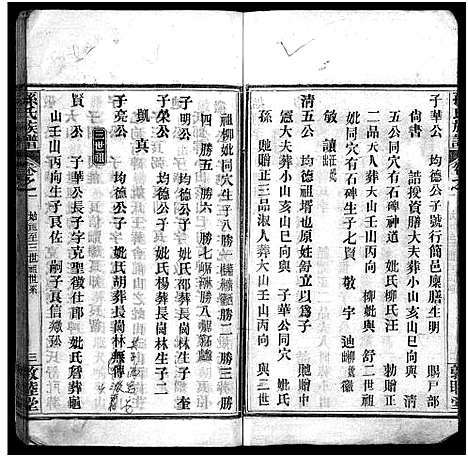 子華公 均德公子號行簡邑廩膳生明 賜戶部
尙書 誥授資善大夫葬小山亥山巳向與 清
五公同穴有石碑神道 妣柳氏柳氏汪 勅贈正
夫人葬大山壬山丙向 柳妣與 舒二世祖
妣同穴有石碑生子七賢 敬 宇 迪
敏 讓
清五公 均德祖壻也原姓舒立以爲子 馳贈中
憲大夫葬小山亥山巳向與 子華公同穴 妣氏
孫 馳贈正三品淑人葬大山壬山丙向 與二世
祖柳妣同穴生子八勝一 勝二 勝三
四 勝五 勝六 勝七 勝八
子明公 均德公子 妣氏邵葬長崗林生子 奎
子榮公 均德公子 妣氏楊葬長崗林生子二
凱 真
子亮公 均德公子 妣氏胡葬長崗林無傳
三世祖
賢公 子華公長子字克聖徵仕郎 妣氏詹葬龜
山壬山丙向生子良佐 嗣子良信
孫氏族譜 卷之一 始祖至三世祖世系 三 敦睦堂